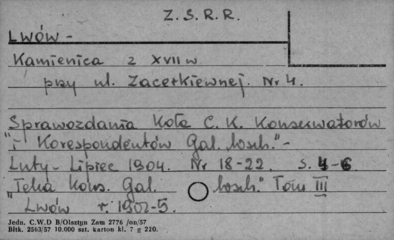 Z. S. R. R.
LWÓW -
Kamienica z XVII w
przy ul. Zacerkiewnej. Nr 4.
Sprawozdania Koła C. K. Konserwatorów
"i Korespondentów Gal. wsch." -
Luty - Lipiec 1904. Nr 18-22. s. 4-6
"Teka Kons. Gal. wsch." Tom III
Lwów r. 1902-5.
Jedn. C.W.D B/Olsztyn Zam 2776 /on/57
Błtk. 2563/57 10.000 szt. karton kl. 7 g 220.